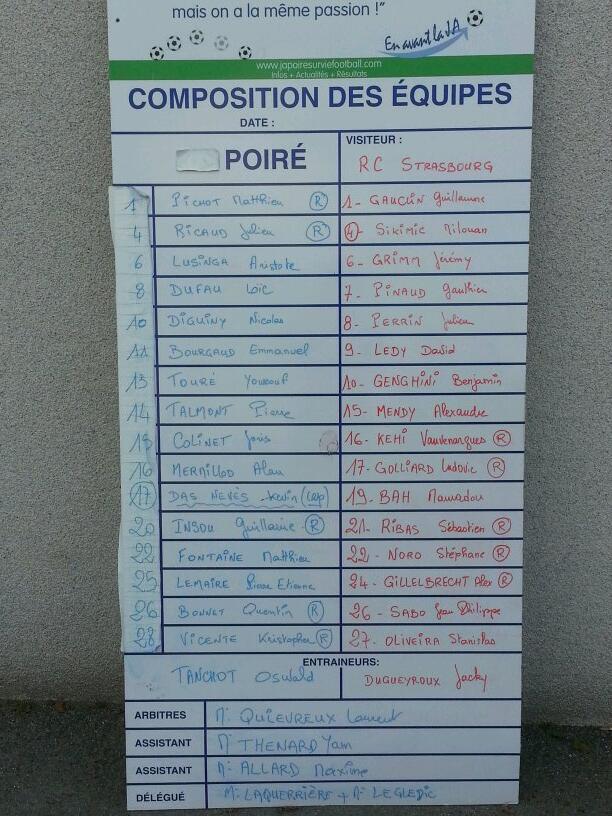 mais on a la même passion !"
En avant la JA
www.japoiresurviefootball.com
Infos + Actualités + Résultats
COMPOSITION DES ÉQUIPES
DATE :
POIRÉ
VISITEUR :
RC STRASBOURG
1 PICHOT Matthieu (R) 1- GAUCLIN Guillaume
4 RICAUD Julien (R) 4- SIKIMIC Milovan
6 LUSINGA Aristote 6- GRIMM Jérémy
8 DUFAU Loïc 7- PINAUD Gauthier
10 DIGUINY Nicolas 8- PERRIN Julien
11 BOURGAUD Emmanuel 9- LEDY David
13 TOURÉ Youssouf 10- GENGHINI Benjamin
14 TALMONT Pierre 15- MENDY Alexandre
15 COLINET Joris 16- KEHI Vauvenargues (R)
16 MERMILLOD Alan 17- GOLLIARD Ludovic (R)
17 DAS NEVÈS Kevin (cap) 19- BAH Mamadou
20 INSOU Guillaume (R) 21- RIBAS Sébastien (R)
22 FONTAINE Matthieu 22- NORO Stéphane (R)
25 LEMAIRE Pierre Etienne 24- GILLELBRECHT Alex (R)
26 BONNET Quentin (R) 26- SABO Jean Philippe
28 VICENTE Kristopher (R) 27- OLIVEIRA Stanislas
ENTRAINEURS:
TANCHOT Oswald DUGUEYROUX Jacky
ARBITRES Mr QUILEVREUX Laurent
ASSISTANT Mr THENARD Yam
ASSISTANT Mr ALLARD Maxime
DÉLÉGUÉ Mr LAQUERRIÈRE + Mr LE GLEDIC